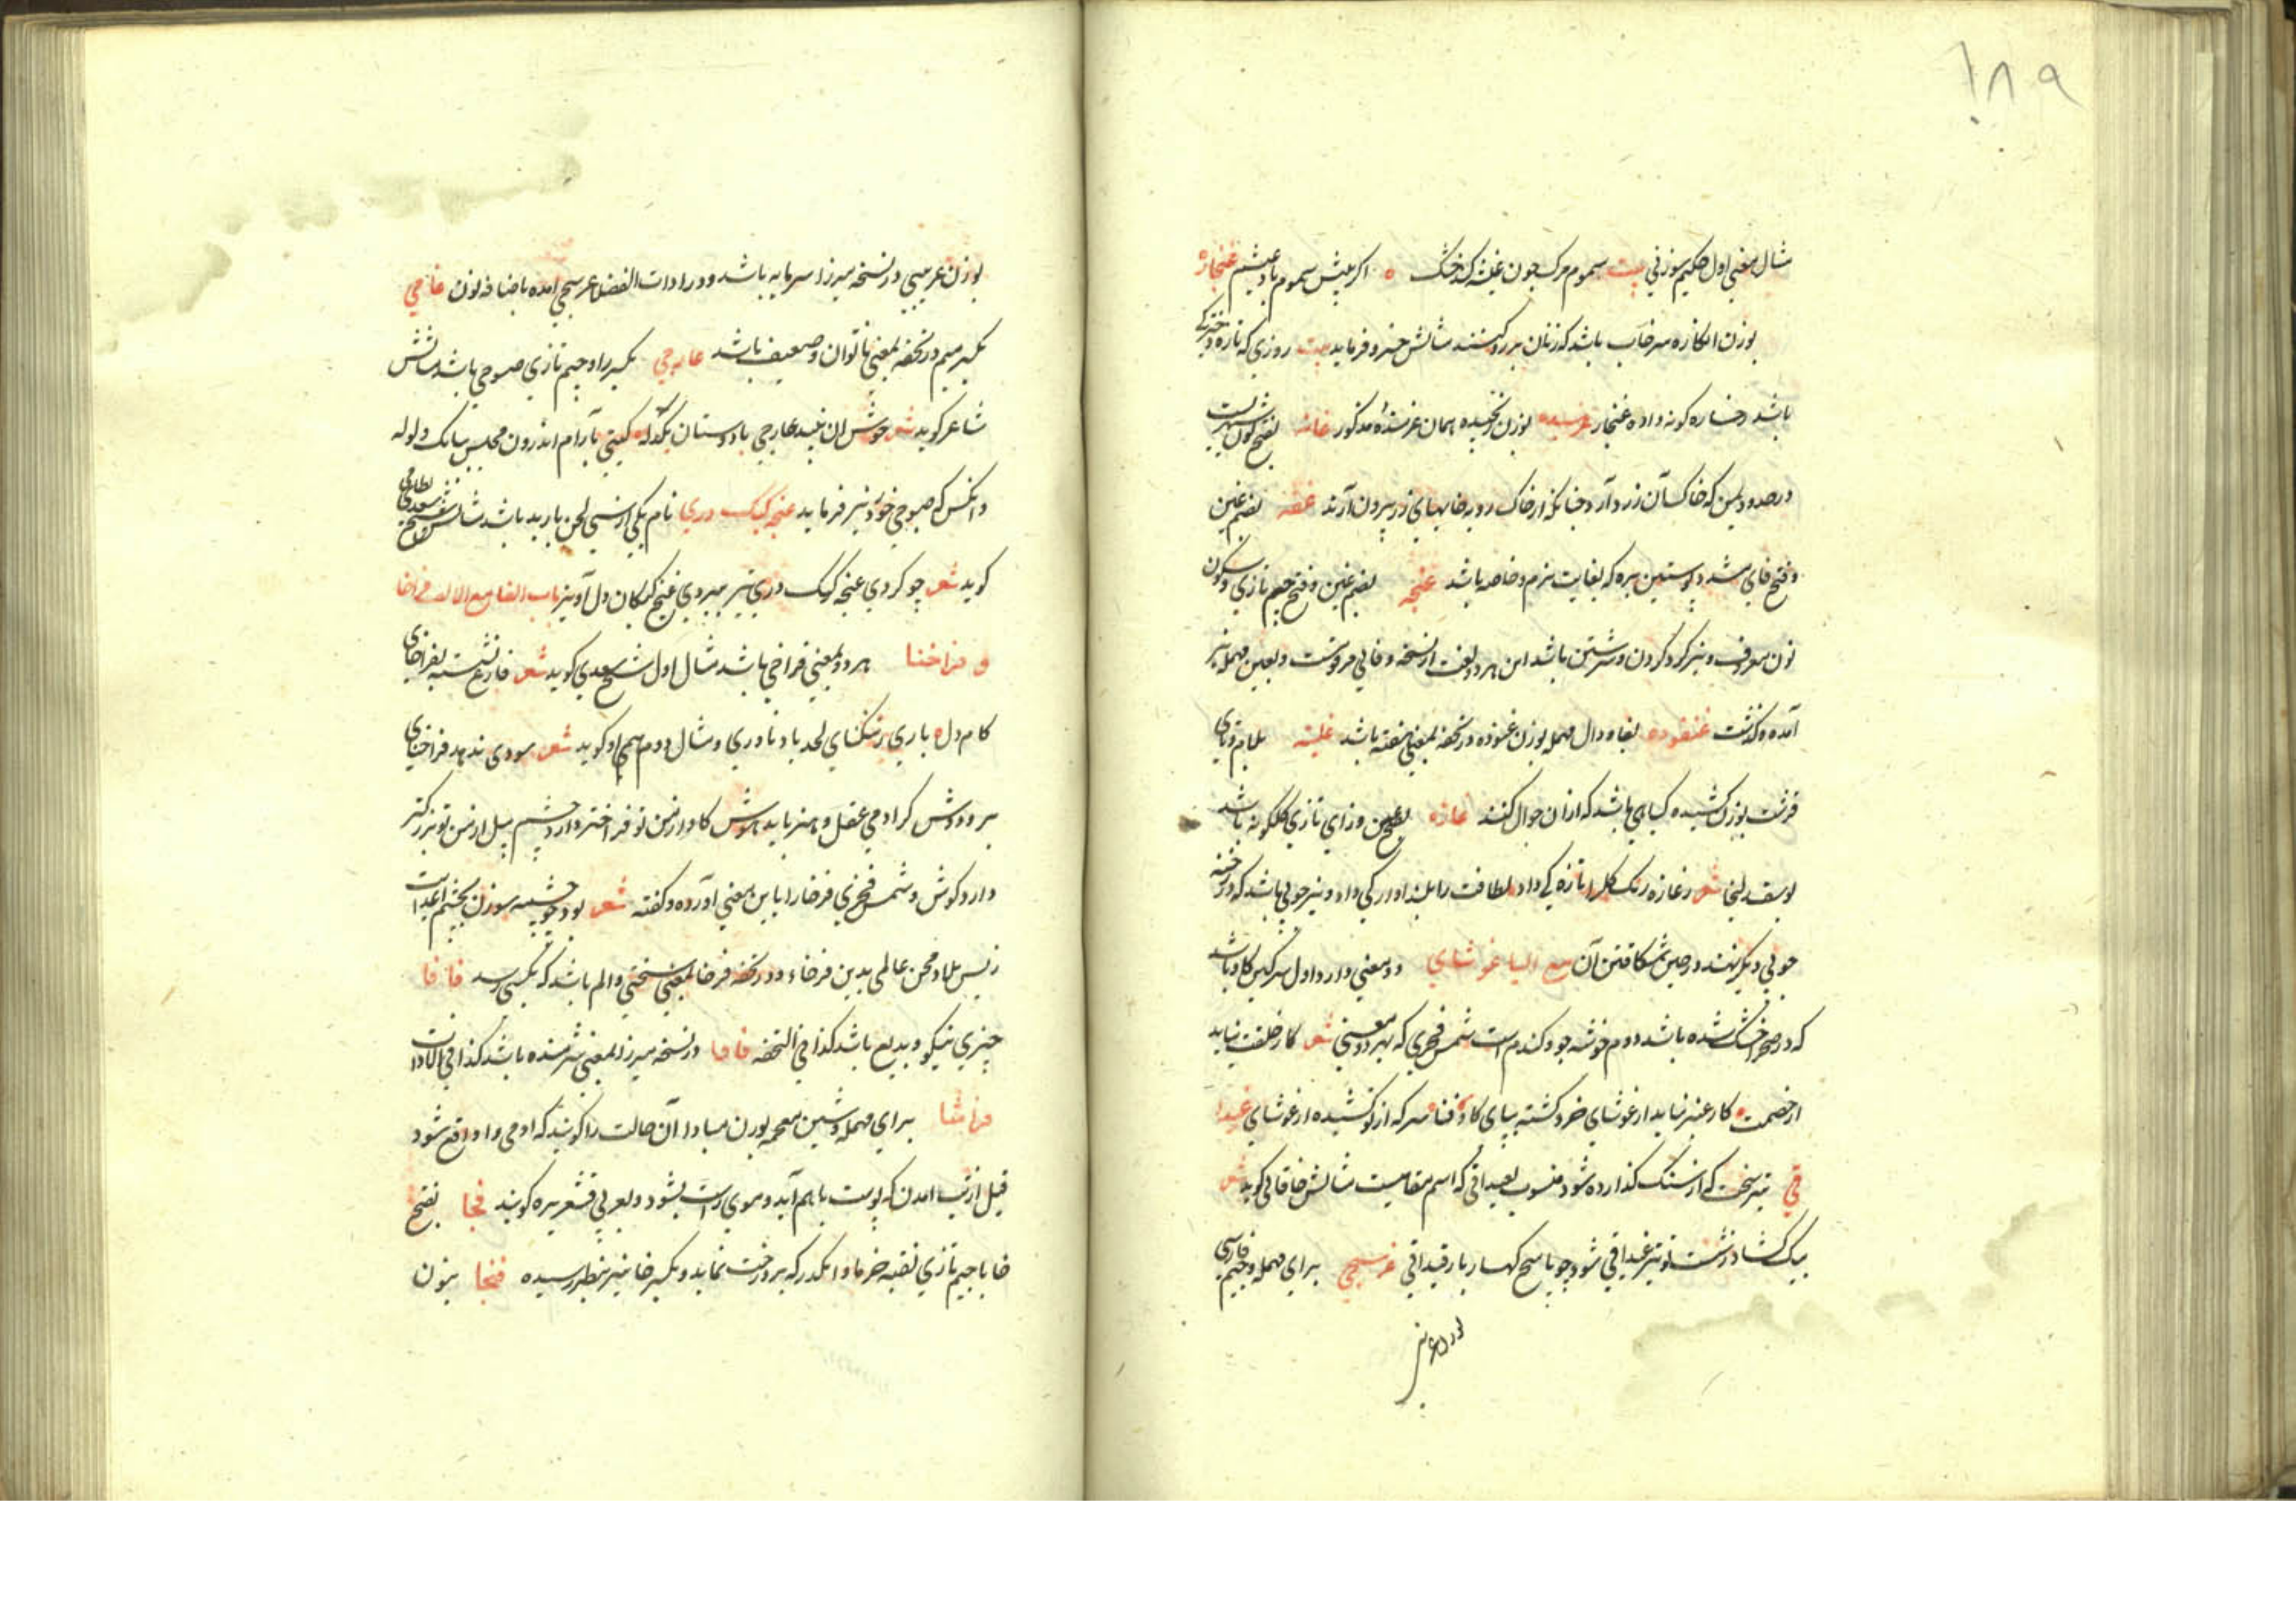 ۱۸۹
مثال معنی اول حکیم سوزنی بیت سموم مرگ چون غیشه کند خشک ه اگر بیش سموم باد عیشم غنجاره
بوزن انکاره سرخاب باشد که زنان بر رو کنند مثالش خسرو فرماید بیت روزی که تازه دخترکی
باشد رخساره کونه داده غنجار غرسیده بوزن رنجیده همان غرنده مذکور غانه بفتح نون شهریست
در حدود یمن که خاک آن زر دارد چنانکه از خاک روبه خانهای زر بیرون آرند غفه بضم غین
و فتح فای مشدد پوستین بره که بغایت نرم و خاصه باشد غنجه بضم غین و فتح جیم تازی و سکون
نون معروف و نیز کرد کردن و سرشتن باشد این هر دو لغت از نسخه وفائی مرویست و بعین مهمله نیز
آمده و گذشت غنفوده بفا و دال مهمله بوزن غنوده در تحفه بمعنی خفته باشد غلیته بلام و تای
قرشت بوزن کشیده گیاهی باشد که از آن جوال کنند غازه بفتح غین و زای تازی گلگونه باشد
یوسف زلیخا شعر ز غازه رنگ گل را تازگی داد لطافت را بلند اوازگی داد و نیز چوبی باشد که در رخنه
چوبی دیگر نهند در حین شکافتن آن مع الیا غوشای دو معنی دارد اول سرگین گاو باشد
که در صحرا خشک شده باشد دوم خوشه جو و گندم است شمس فخری که بهر دو معنی شعر کار خلقت نیاید
از خصمت ه کار عنبر نیاید از غوشای خرد کشته بپای گاو فنا ه سر که از تو کشیده از غوشای غیدا
قی تیر سخت که از سنگ گذارده شود منسوب بغیداق که اسم مقامیست مثالش خاقانی گوید شعر
بیک گشاد ز شست تو تیر غیداقی شود چو ناسخ کهسار بار قیداقی غرسیچی برای مهمله و جیم فارسی
بوزن عربیی در نسخه میرزا سرمایه باشد و در ادات الفضلا غرسیچی آمده باضافه نون غامی
بکسر میم در تحفه بمعنی ناتوان و ضعیف باشد غارجی بکسر را و جیم تازی صبوحی باشد مثالش
شاعر گوید شعر خوش ان نبید غارجی با دوستان یکدله گیتی بآرام اندرون مجلس ببانک و ولوله
وانکس که صبوحی خورد نیز فرماید غنجه کبک دری نام یکی از سی لحن باربد باشد مثالش شیخ نظامی
گوید شعر چو کردی غنجه کبک دری تیز ببردی غنج کبکان دل آویز باب الفا مع الالف فراخا
و فراخنا هر دو بمعنی فراخی باشد مثال اول شیخ سعدی گوید شعر فارغ نشسته بفراخای
کام دل ه باری ز تنگنای لحد یاد ناوری و مثال دوم هم او گوید شعر سودی ندهد فراخنای
بر و دوش گر ادمی عقل و هنر باید و هوش گاو از من و تو فراختر دارد چشم پیل از من و تو بزرگتر
دارد گوش و شمس فخری فرخا را باین معنی آورده و گفته شعر بود چو چشمه سوزن بچشم اعدایت
ز بس بلا و محن عالمی بدین فرخاء و در تحفه فرخا بمعنی سختی و الم باشد که بکسی رسد فافا
چیزی نیکو و بدیع باشد کذا فی التحفه فاوا در نسخه میرزا بمعنی شرمنده باشد کذا فی الادات
فراشا برای مهمله و شین معجمه بوزن مبادا آن حالت را گویند که ادمی را واقع شود
قبل از تب امدن که پوست باهم آید و موی راست بشود و بعربی قشعریره گویند فجا بفتح
فا با جیم تازی نقیه خرما و انگور که بر درخت نماید و بکسر فا نیز بنظر رسیده فنجا بنون